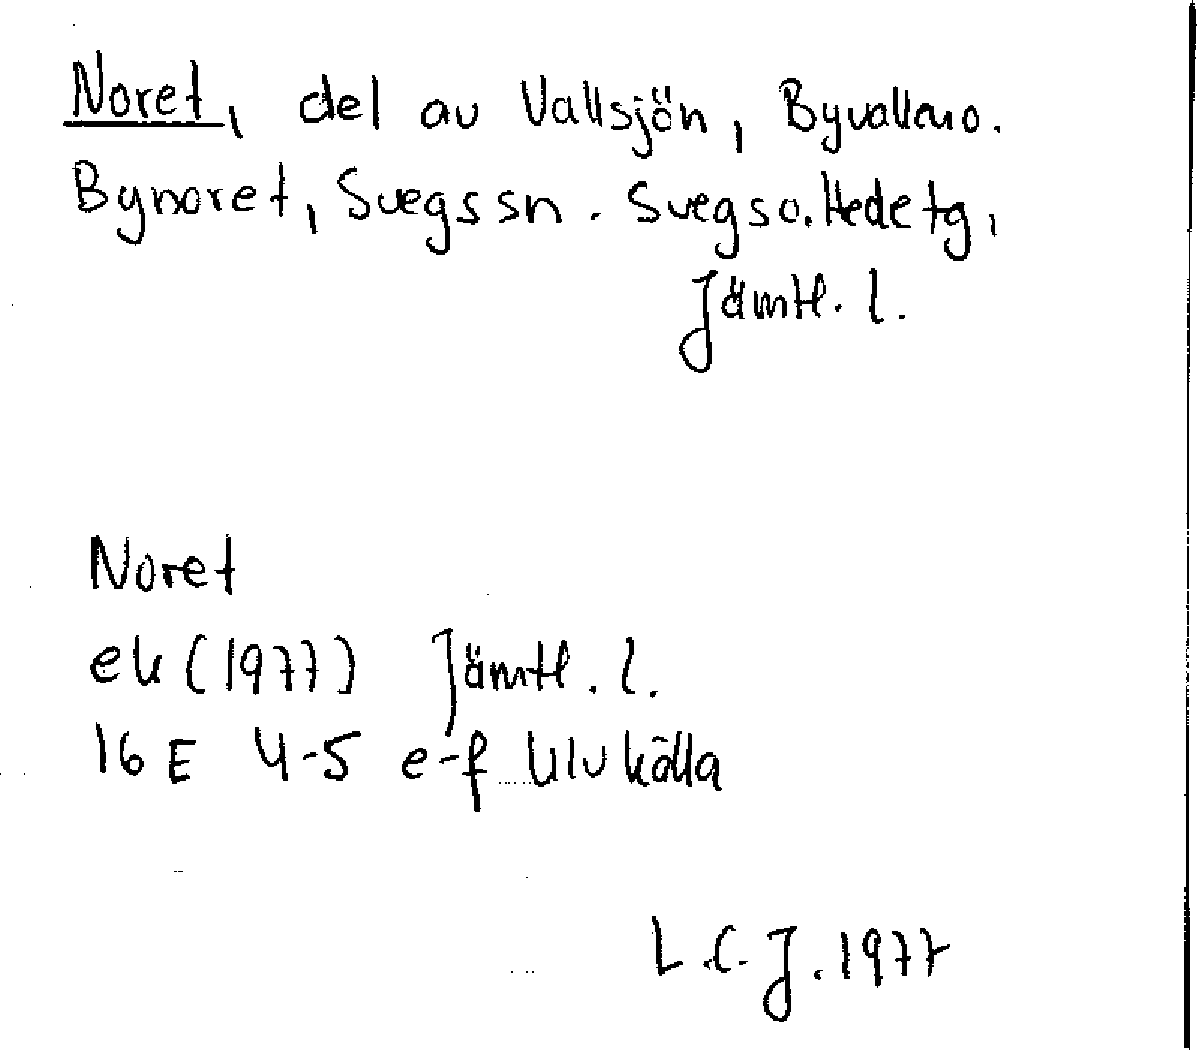 Noret, del av Vallsjön, Byvallen o.
Bynoret, Svegs sn. Svegs o. Hede tg,
Jämtl. l.
Noret
ek (1977) Jämtl. l.
16 E 4-5 e-f Ulvkälla
L.C.J. 1977